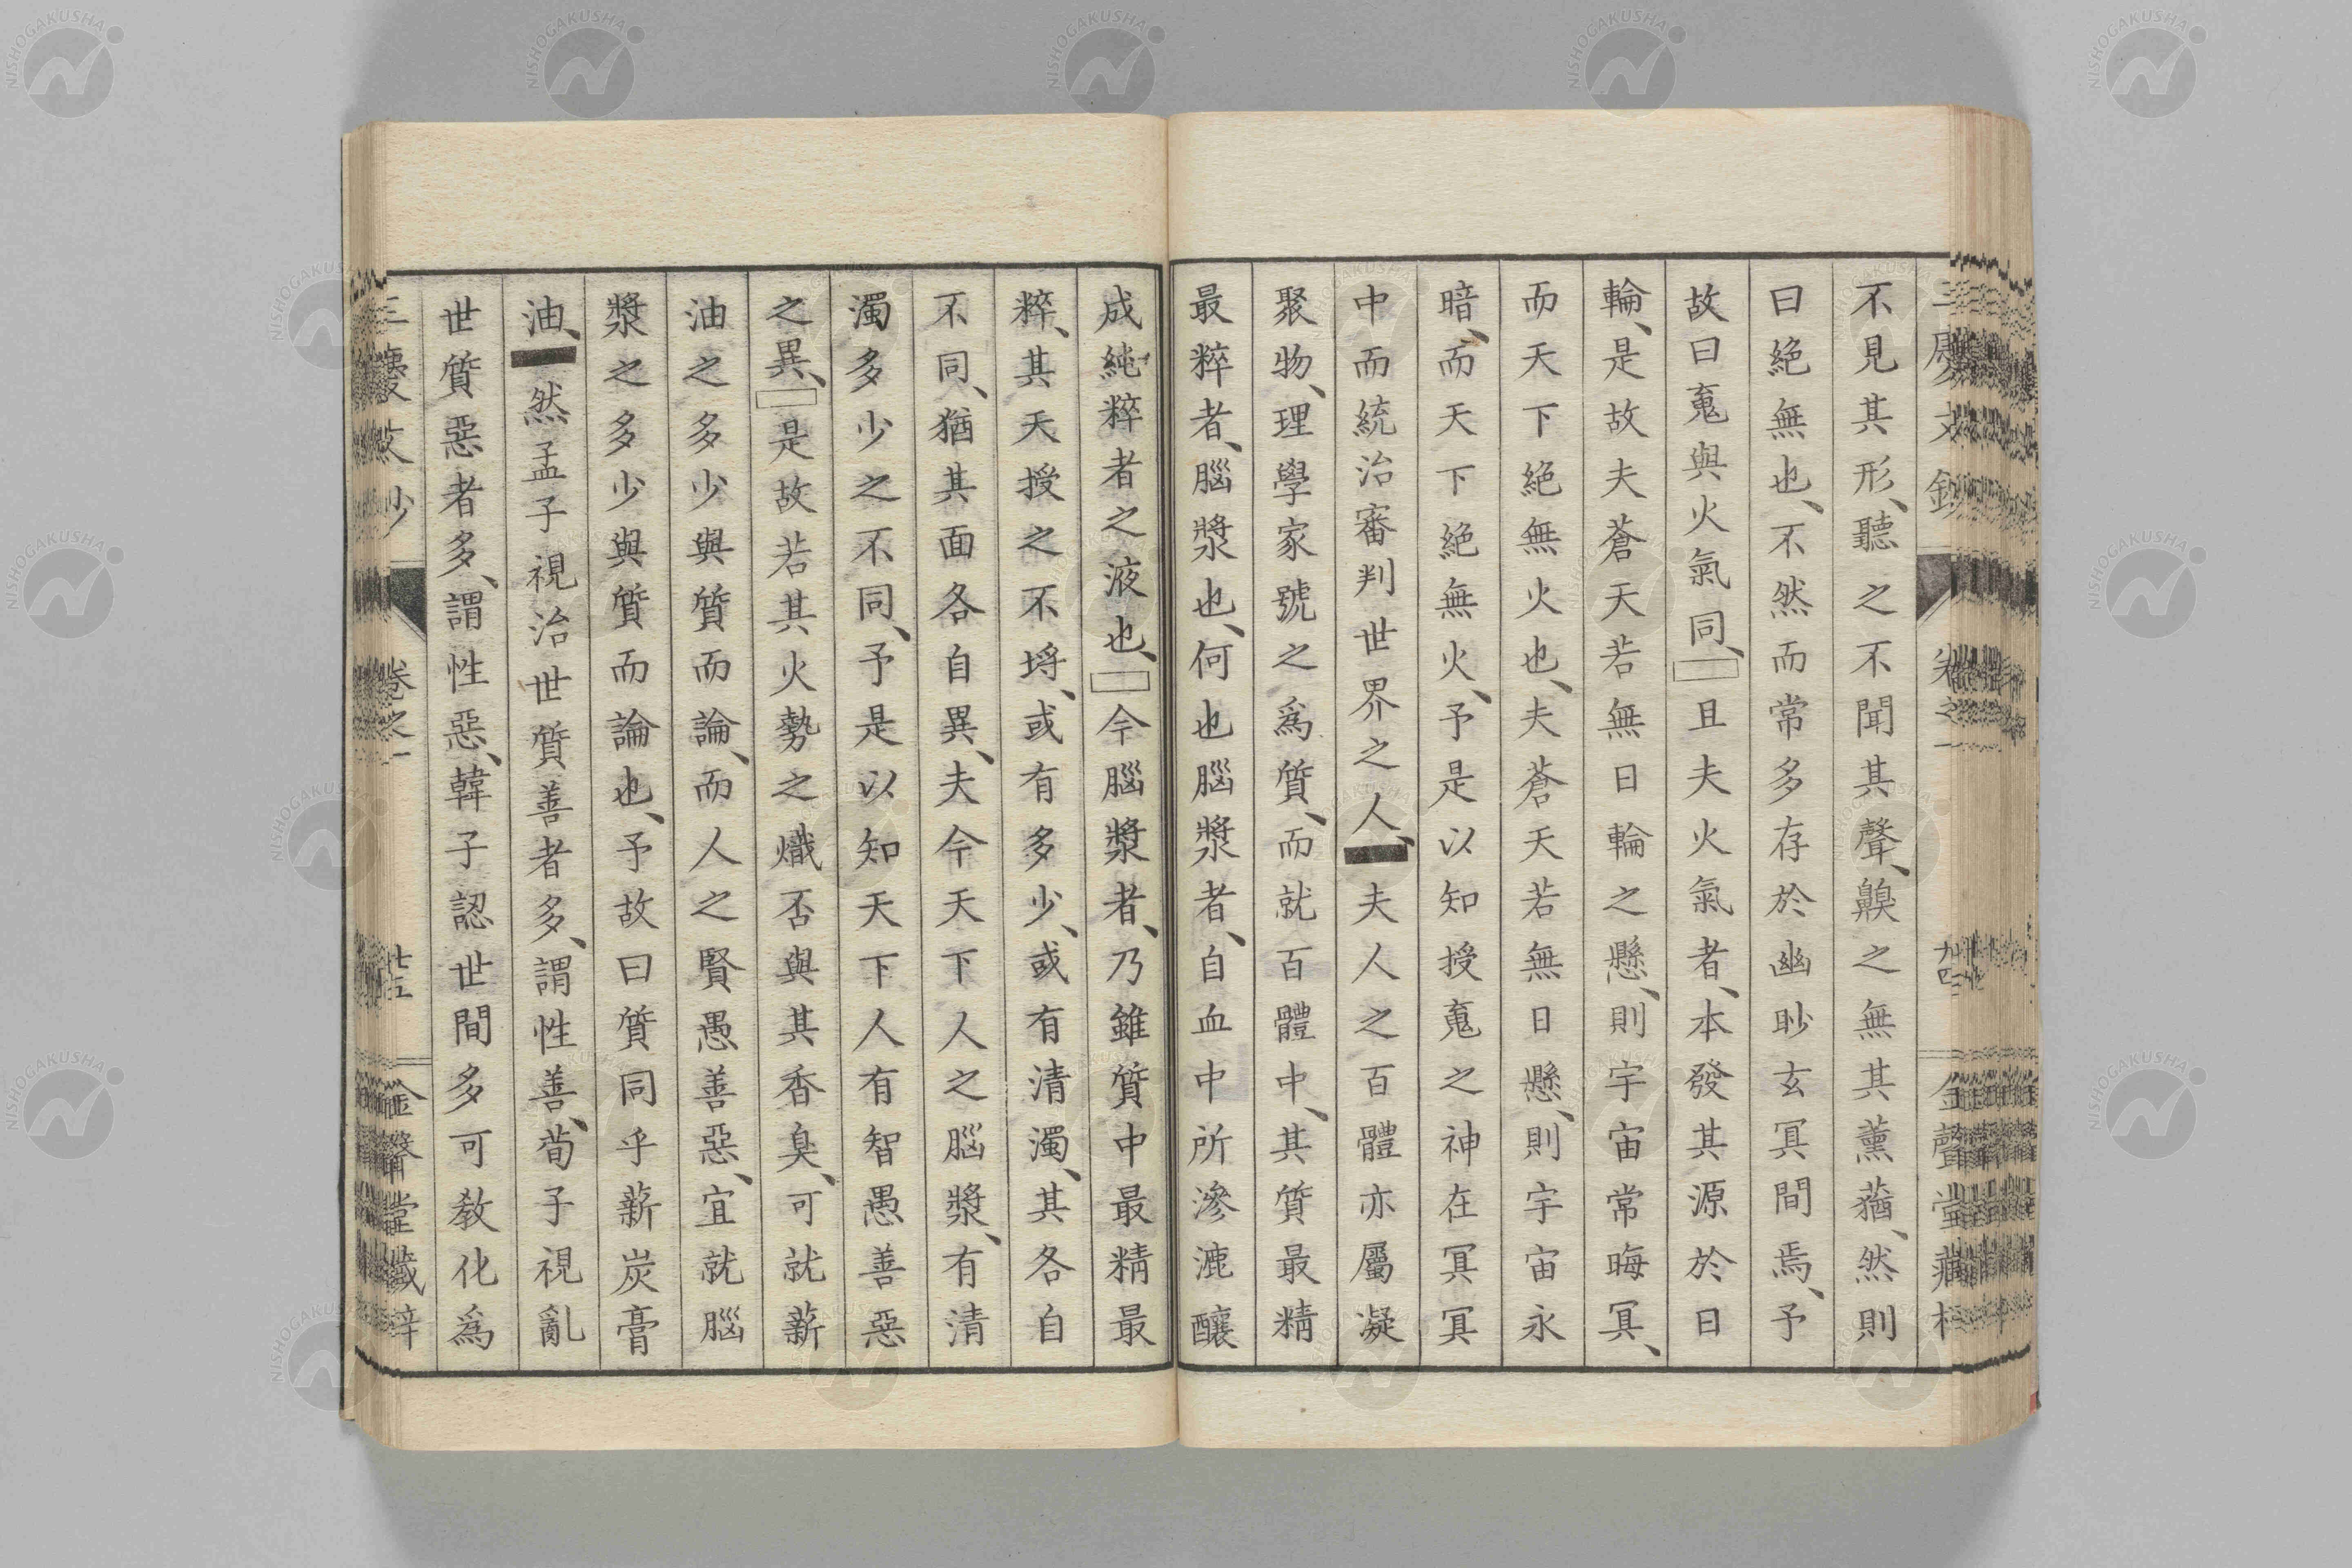 不見其形、聽之不聞其聲、齅之無其薰蕕、然則
曰絕無也、不然而常多存於幽眇玄冥間焉、予
故曰䰟與火氣同、且夫火氣者、本發其源於日
輪、是故夫蒼天若無日輪之懸、則宇宙常晦冥、
而天下絕無火也、夫蒼天若無日懸、則宇宙永
暗、而天下絕無火、予是以知授䰟之神在冥冥
中而統治審判世界之人、夫人之百體亦屬凝
聚物、理學家號之爲質、而就百體中、其質最精
最粹者、腦漿也、何也腦漿者、自血中所滲漉釀
成純粹者之液也、今腦漿者、乃雖質中最精最
粹、其天授之不埒、或有多少、或有清濁、其各自
不同、猶其面各自異、夫今天下人之腦漿、有清
濁多少之不同、予是以知天下人有智愚善惡
之異、是故若其火勢之熾否與其香臭、可就薪
油之多少與質而論、而人之賢愚善惡、宜就腦
漿之多少與質而論也、予故曰質同乎薪炭膏
油、然孟子視治世質善者多、謂性善、荀子視亂
世質惡者多、謂性惡、韓子認世間多可敎化爲
卷之一
NISHOGAKUSHA